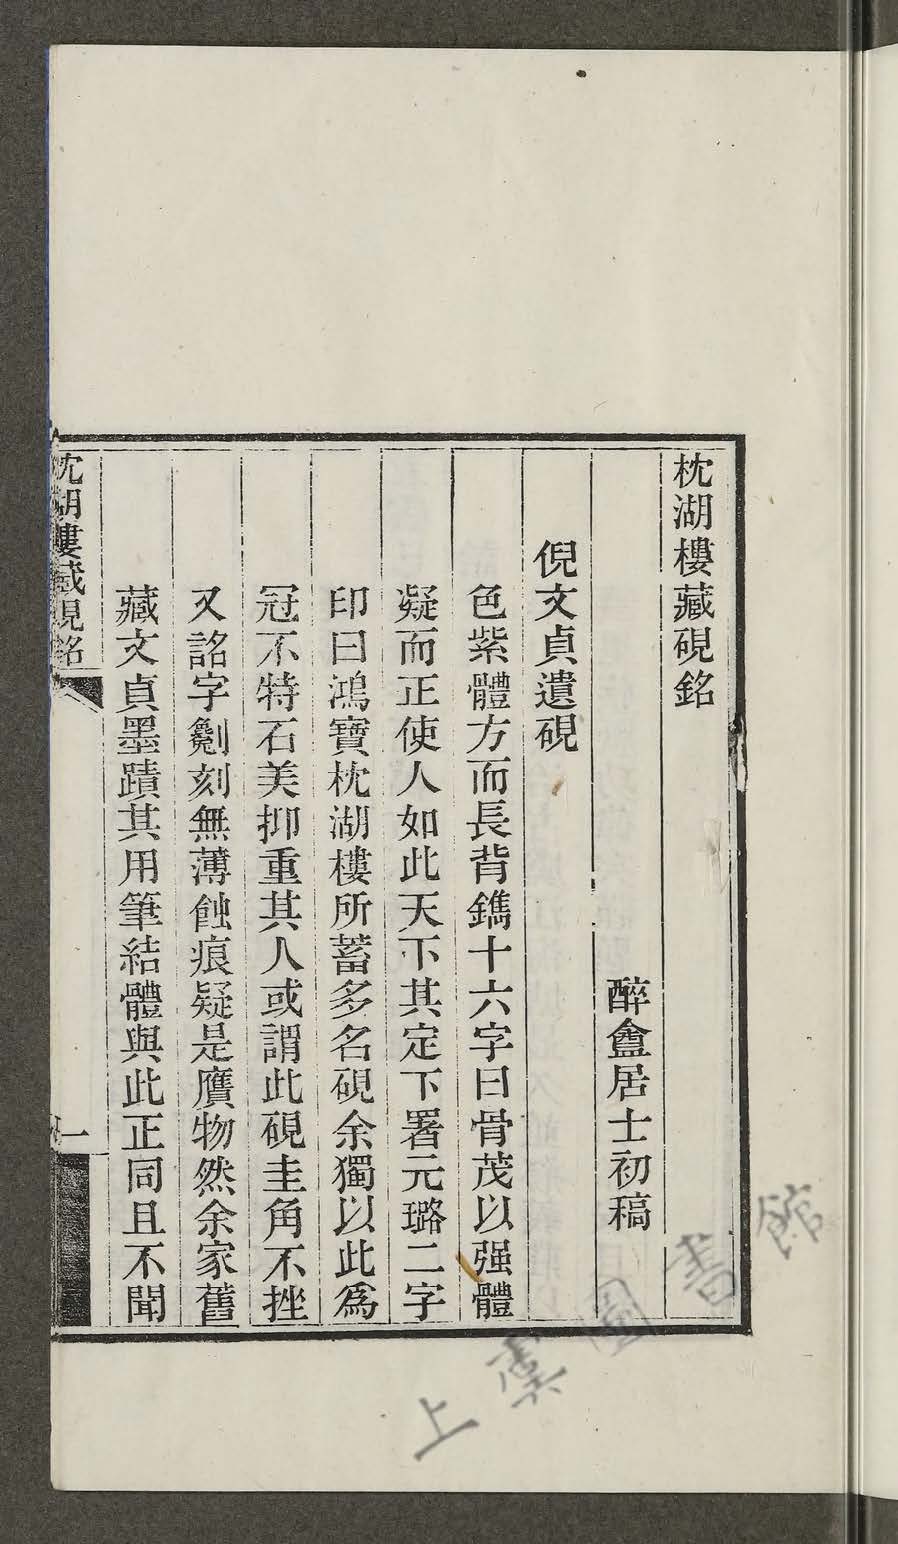 枕湖樓藏硯銘
醉盦居士初稿
倪文貞遺硯
色紫體方而長背鐫十六字曰骨茂以强體
凝而正使人如此天下其定下署元璐二字
印曰鴻寶枕湖樓所蓄多名硯余獨以此爲
冠不特石美抑重其人或謂此硯圭角不挫
又詺字劖刻無薄蝕痕疑是贗物然余家舊
藏文貞墨蹟其用筆結體與此正同且不聞
枕湖樓藏硯銘
一
上虞圖書館